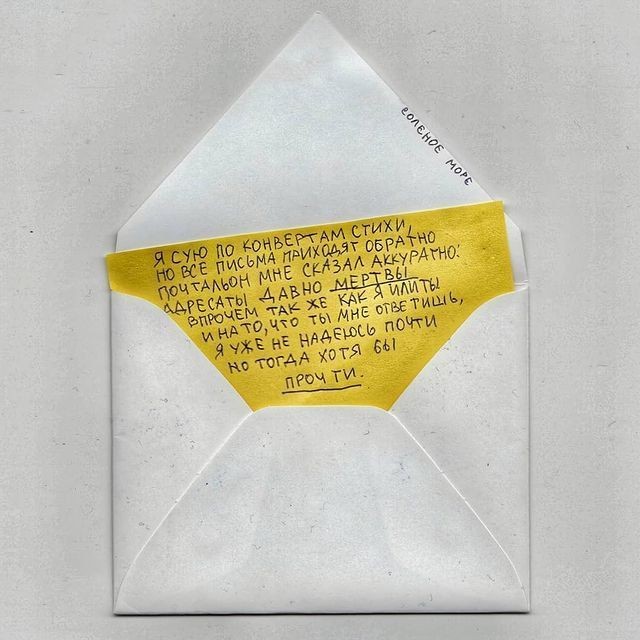 СОЛЕНОЕ МОРЕ
Я СУЮ ПО КОНВЕРТАМ СТИХИ,
НО ВСЕ ПИСЬМА ПРИХОДЯТ ОБРАТНО
ПОЧТАЛЬОН МНЕ СКАЗАЛ АККУРАТНО:
АДРЕСАТЫ ДАВНО МЕРТВЫ
ВПРОЧЕМ ТАК ЖЕ КАК Я ИЛИ ТЫ
И НА ТО, ЧТО ТЫ МНЕ ОТВЕТИШЬ,
Я УЖЕ НЕ НАДЕЮСЬ ПОЧТИ
НО ТОГДА ХОТЯ БЫ
ПРОЧТИ.